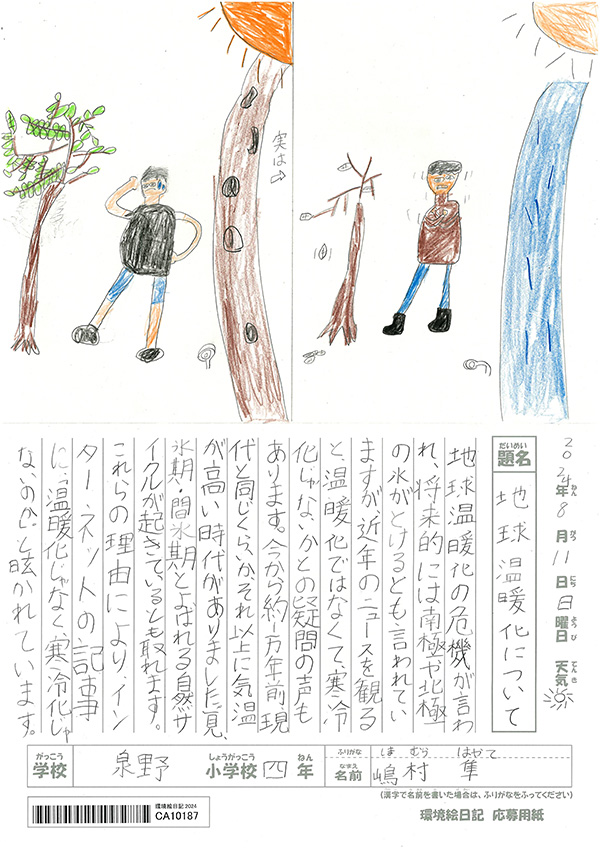 実は→
2024年ねん8月がつ11日にち日曜日ようび天気てんき
だいめい
題名
地球温暖化について
地球温暖化の危機が言わ
れ、将来的には南極や北極
の氷がとけるとも言われてい
ますが、近年のニュースを観る
と、温暖化ではなくて、寒冷
化じゃないかとの疑問の声も
あります。今から約一万年前、現
代と同じくらいか、それ以上に気温
が高い時代がありました。一見、
氷期・間氷期とよばれる自然サ
イクルが起きているとも取れます。
これらの理由により、イン
ターネットの記事
に、「温暖化じゃなく、寒冷化じゃ
ないのか」と呟かれています。
がっこう
学校
泉野
しょうがっこう
小学校
四
ねん
年
ふりがな
しまむら はやて
なまえ
名前
嶋村 隼
(漢字で名前を書いた場合は、ふりがなをふってください)
環境絵日記 2024
CA10187
環境絵日記 応募用紙